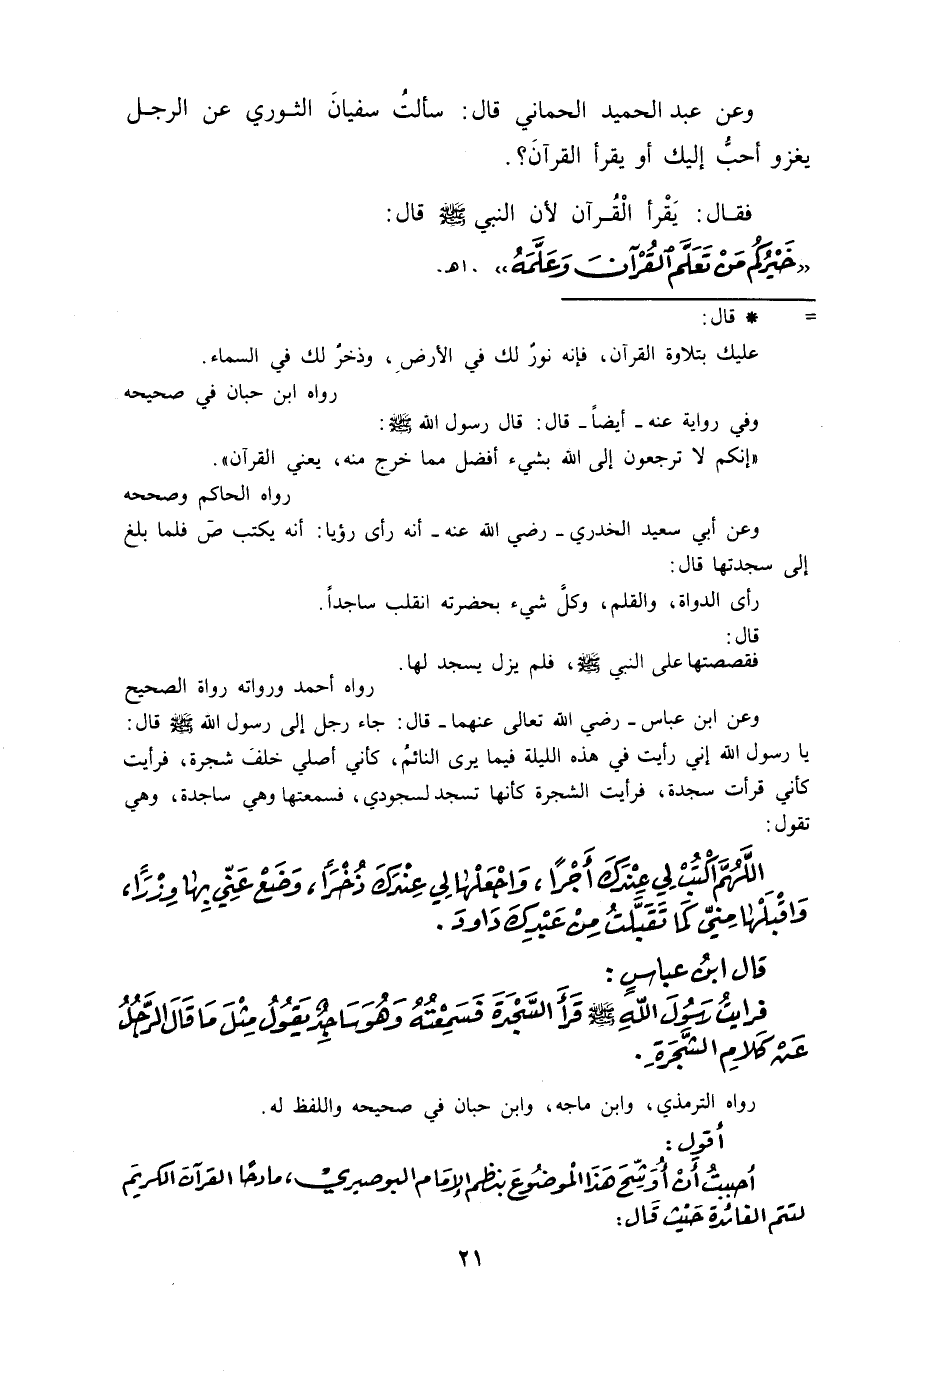 وعن عبد الحميد الحماني قال: سألتُ سفيانَ الثوري عن الرجل
يغزو أحبُّ إليك أو يقرأ القرآنَ؟.
فقال: يَقْرأ الْقُرآن لأن النبي ﷺ قال:
«خَيْرُكُم مَنْ تَعَلَّم القُرْآنَ وَعَلَّمَهُ» ١٠هـ.
= * قال:
عليك بتلاوة القرآن، فإنه نورٌ لك في الأرض، وذخرٌ لك في السماء.
رواه ابن حبان في صحيحه
وفي رواية عنه - أيضاً - قال: قال رسول الله ﷺ:
«إنكم لا ترجعون إلى الله بشيء أفضل مما خرج منه، يعني القرآن».
رواه الحاكم وصححه
وعن أبي سعيد الخدري - رضي الله عنه - أنه رأى رؤيا: أنه يكتب صَ فلما بلغ
إلى سجدتها قال:
رأى الدواة، والقلم، وكلَّ شيء بحضرته انقلب ساجداً.
قال:
فقصصتها على النبي ﷺ، فلم يزل يسجد لها.
رواه أحمد ورواته رواة الصحيح
وعن ابن عباس - رضي الله تعالى عنهما - قال: جاء رجل إلى رسول الله ﷺ قال:
يا رسول الله إني رأيت في هذه الليلة فيما يرى النائمُ، كأني أصلي خلفَ شجرة، فرأيت
كأني قرأت سجدة، فرأيت الشجرة كأنها تسجد لسجودي، فسمعتها وهي ساجدة، وهي
تقول:
اللَّهُمَّ اكْتُبْ لي عِنْدَكَ أَجْرًا، وَاجْعَلْهَا لي عِنْدَكَ ذُخْرًا، وَضَعْ عَنِّي بِهَا وِزْرًا،
وَاقْبَلْهَا مِنِّي كَمَا تَقَبَّلْتُ مِنْ عَبْدِكَ دَاودَ.
قال ابنُ عباسٍ:
فرايتُ رَسُولَ اللَّهِ ﷺ قَرَأَ السَّجْدَةَ فَسَمِعْتُهُ وَهُوَ سَاجِدٌ يَقُولُ مِثْلَ مَا قَالَ الرَّجُلُ
عَنْ كَلَامِ الشَّجَرَةِ.
رواه الترمذي، وابن ماجه، وابن حبان في صحيحه واللفظ له.
أقول:
أحببتُ أَنْ أُوَشِّحَ هَذَا الموضُوعَ بنظم الإمَام البوصيري، مادحًا القرآن الكريمَ
لتتم الفائدة حَيْث قَال:
٢١